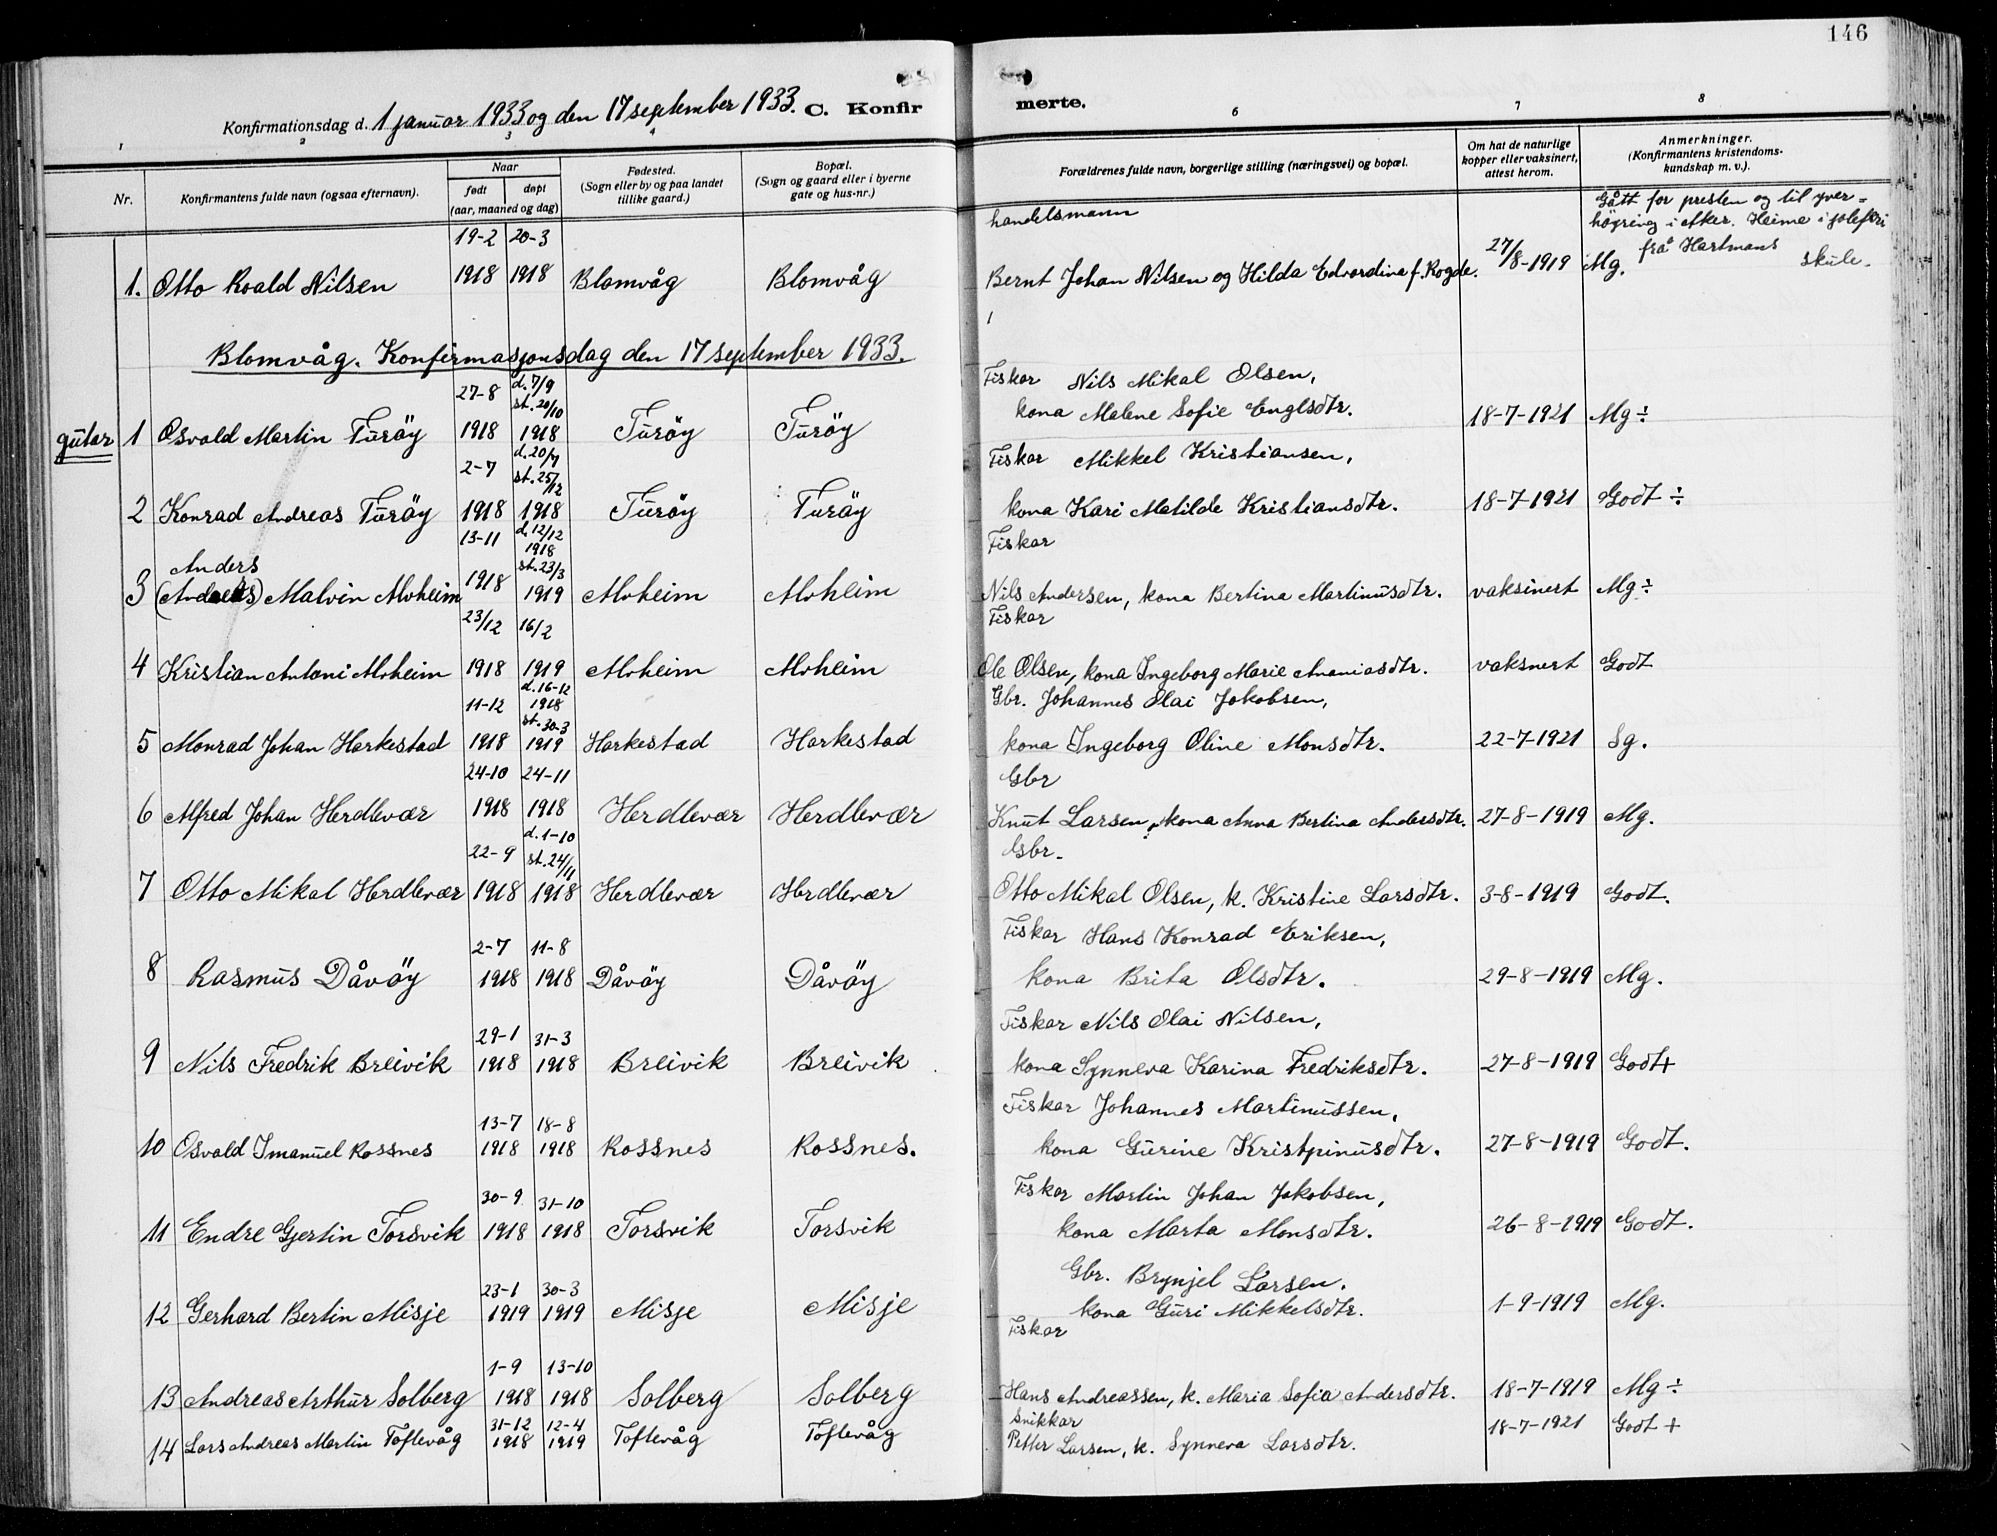 146
Konfirmationsdag d. 1 januar 1933 og den 17 september 1933. C. Konfirmerte.
1 2 3 4 6 7 8
Nr.
Konfirmantens fulde navn (ogsaa efternavn).
Naar
født døpt
(aar, maaned og dag)
Fødested.
(Sogn eller by og paa landet
tillike gaard.)
Bopæl.
(Sogn og gaard eller i byerne
gate og hus-nr.)
Forældrenes fulde navn, borgerlige stilling (næringsvei) og bopæl.
Om hat de naturlige
kopper eller vaksinert,
attest herom.
Anmerkninger.
(Konfirmantens kristendoms-
kundskap m. v.).
19-2 20-3 handelsmann Gått for presten og til yver-
høyring i Aker. Heime i joleferi
frå Hartmans skule.
1. Otto Roald Nilsen 1918 1918 Blomvåg Blomvåg Bernt Johan Nilsen og Hilda Edvardina f. Rogde. 27/8-1919 Mg.
Blomvåg. Konfirmasjonsdag den 17 september 1933.
27-8 d. 7/9 st. 20/10 Fiskar Nils Mikal Olsen,
gutar 1 Osvald Martin Turöy 1918 1918 Turöy Turöy kona Malene Sofie Englsdtr. 18-7-1921 Mg÷
2-7 d. 20/7 st. 25/12 Fiskar Mikkel Kristiansen,
2 Konrad Andreas Turöy 1918 1918 Turöy Turöy kona Kari Matilde Kristiansdtr. 18-7-1921 Godt ÷
13-11 d. 12/12 1918 st. 23/3 Fiskar
Anders
3 (Andreas) Malvin Alvheim 1918 1919 Alvheim Alvheim Nils Andersen, kona Bertina Martinusdtr. vaksinert Mg÷
23/12 16/2 Fiskar
4 Kristian Antoni Alvheim 1918 1919 Alvheim Alvheim Ole Olsen, kona Ingeborg Marie Ananiasdtr. vaksnert Godt
11-12 d. 16-12 1918 st. 30-3 Gbr. Johannes Olai Jakobsen,
5 Monrad Johan Harkestad 1918 1919 Harkestad Harkestad kona Ingeborg Oline Monsdtr. 22-7-1921 Sg.
24-10 24-11 Gbr
6 Alfred Johan Herdlevær 1918 1918 Herdlevær Herdlevær Knut Larsen, kona Anna Bertina Andersdtr. 27-8-1919 Mg.
22-9 d. 1-10 st. 24/11 Gbr.
7 Otto Mikal Herdlevær 1918 1918 Herdlevær Herdlevær Otto Mikal Olsen, k. Kristine Larsdtr. 3-8-1919 Godt.
2-7 11-8 Fiskar Hans Konrad Eriksen,
8 Rasmus Dåvöy 1918 1918 Dåvöy Dåvöy kona Brita Olsdtr. 29-8-1919 Mg.
29-1 31-3 Fiskar Nils Olai Nilsen,
9 Nils Fredrik Breivik 1918 1918 Breivik Breivik kona Synneva Karina Fredriksdtr. 27-8-1919 Godt+
13-7 18-8 Fiskar Johannes Martinussen,
10 Osvald Imanuel Rossnes 1918 1918 Rossnes Rossnes. kona Gurine Kristpinusdtr. 27-8-1919 Godt.
30-9 31-10 Fiskar Martin Johan Jakobsen,
11 Endre Gjertin Torsvik 1918 1918 Torsvik Torsvik kona Marta Monsdtr. 26-8-1919 Godt.
23-1 30-3 Gbr. Brynjel Larsen,
12 Gerhard Bertin Misje 1919 1919 Misje Misje kona Guri Mikkelsdtr. 1-9-1919 Mg.
1-9 13-10 Fiskar
13 Andreas Arthur Solberg 1918 1918 Solberg Solberg Hans Andreassen, k. Maria Sofia Andersdtr. 18-7-1919 Mg÷
31-12 12-4 Snikkar
14 Lars Andreas Martin Toftevåg 1918 1919 Toftevåg Toftevåg Petter Larsen, k. Synneva Larsdtr. 18-7-1921 Godt +